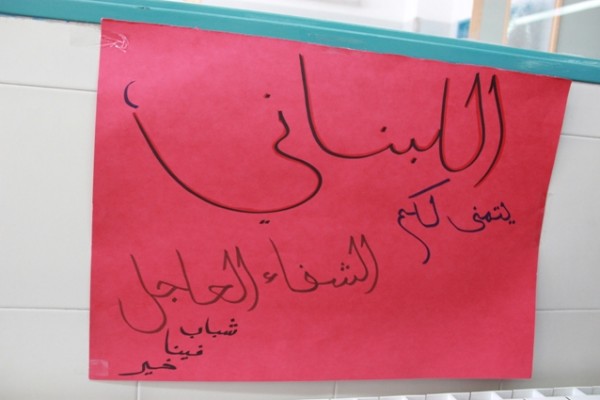 اللبناني
يتمنى لكم
الشفاء العاجل
شباب
فينا
خير